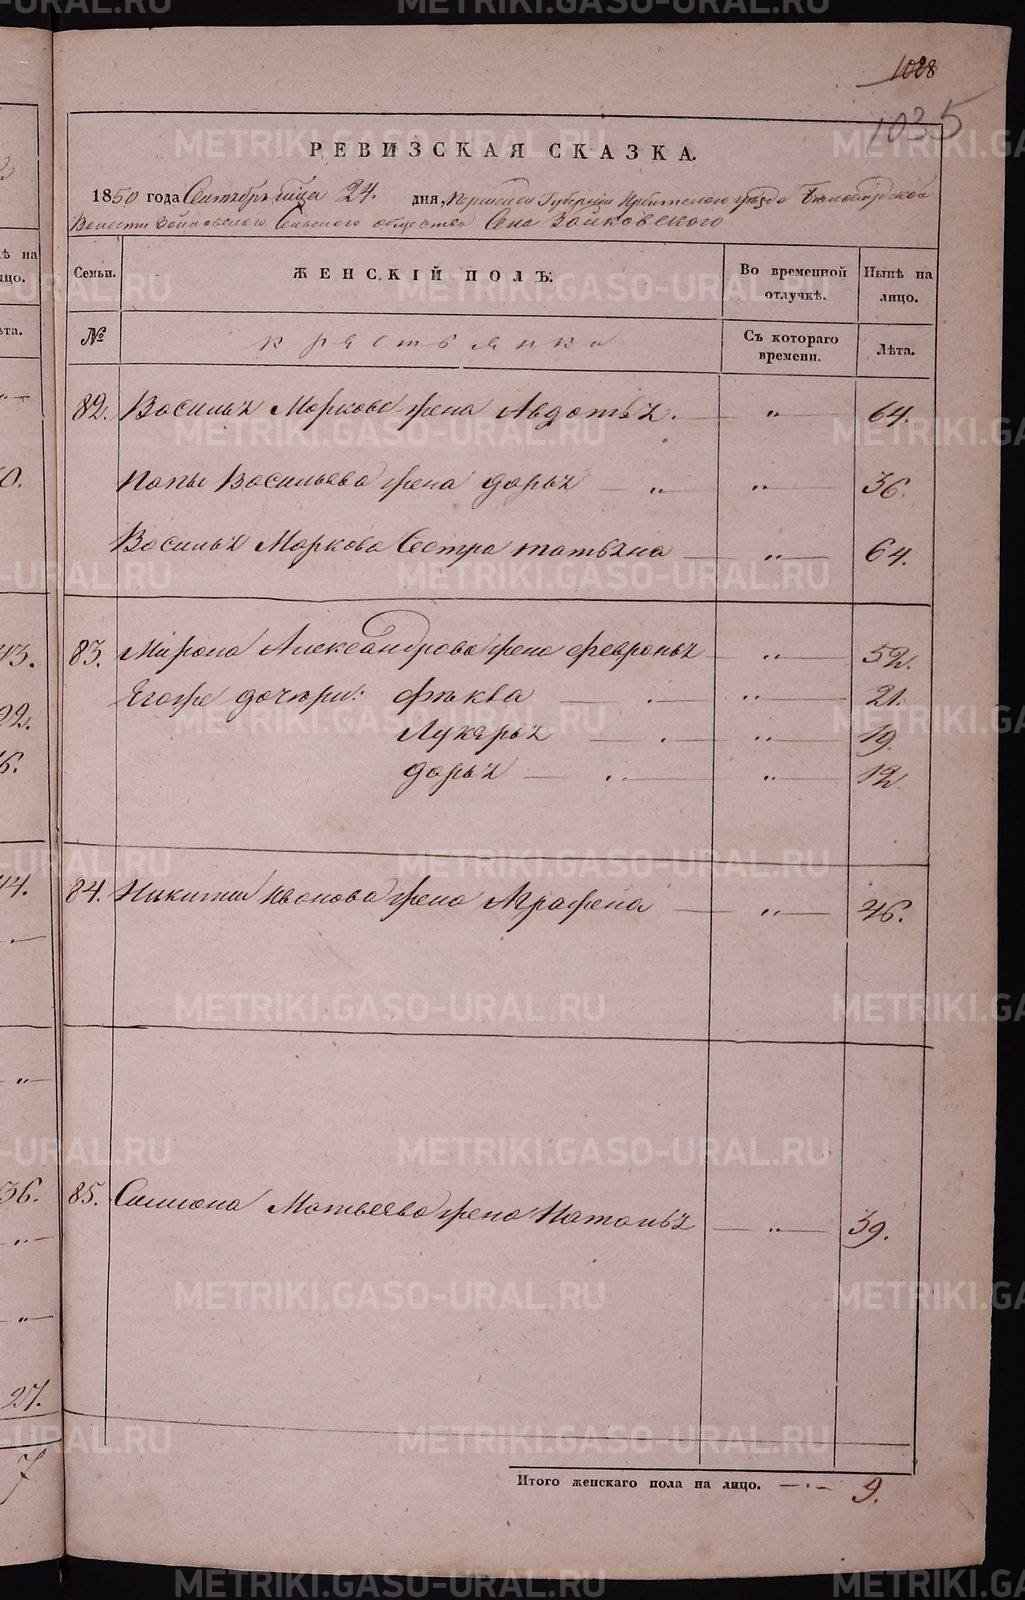 METRIKI.GASO-URAL.RU
1028
1035
РЕВИЗСКАЯ СКАЗКА.
1850 года Сентября месяца 24. дня, Пермской Губернии Ирбитского уезда Белослудской
Волости Зайковскаго Сельского общества Села Зайковского
Семьи. ЖЕНСКІЙ ПОЛЪ: Во временной отлучкѣ. Нынѣ на лицо.
№ крестьянки Съ котораго времени. Лѣта.
82. Василья Маркова жена Авдотья. — " — 64.
Попы Васильева жена Дарья — " — " — 36.
Василья Маркова Сестра татьяна — " — 64.
83. Мирона Александрова жена февронья — " — 52.
Егоже дочери: фекла — " — 21.
Лукерья — " — 19.
дарья — " — 12.
84. Никиты Иванова жена Аграфена — " — 46.
85. Симиона Матвеева жена Наталья — " — 39.
Итого женскаго пола на лицо. — " — 9.